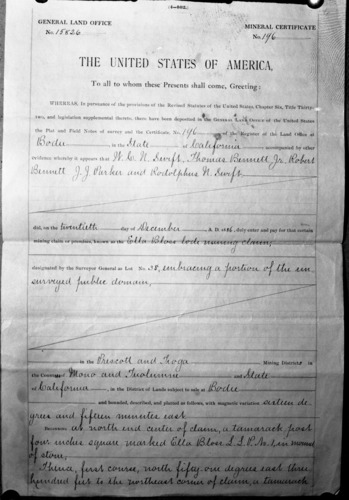 (4-682.)
GENERAL LAND OFFICE
No. 15826
MINERAL CERTIFICATE
No. 196
THE UNITED STATES OF AMERICA,
To all to whom these Presents shall come, Greeting:
WHEREAS, In pursuance of the provisions of the Revised Statutes of the United States, Chapter Six, Title Thirty-
two, and legislation supplemental thereto, there have been deposited in the General Land Office of the United States
the Plat and Field Notes of survey and the Certificate, No. 196 of the Register of the Land Office at
Bodie in the State of California accompanied by other
evidence whereby it appears that W. C. N. Swift, Thomas Bennett, Jr. Robert
Bennett J. J. Parker and Rodolphus N. Swift
did, on the twentieth day of December, A. D. 1886, duly enter and pay for that certain
mining claim or premises, known as the Ella Bloss lode mining claim,
designated by the Surveyor General as Lot No. 38, embracing a portion of the un
surveyed public domain,
in the Prescott and Tioga Mining Districts in
the Counties of Mono and Tuolumne and State
of California, in the District of Lands subject to sale at Bodie
and bounded, described, and platted as follows, with magnetic variation sixteen de
grees and fifteen minutes east
Beginning at north end center of claim, a tamarack post
four inches square, marked Ella Bloss L. L. P. M. 1, in mound
of stone,
Thence, first course, north fifty one degrees east three
hundred feet to the northeast corner of claim, a tamarack